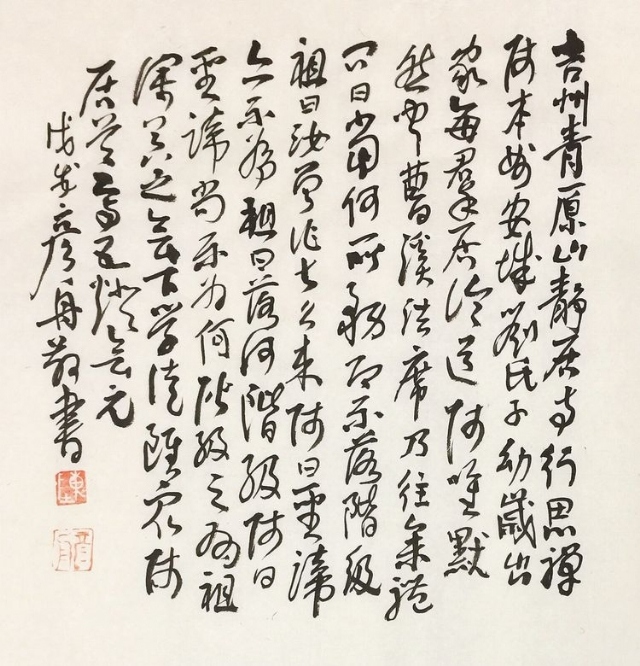 吉州青原山靜居寺行思禪
師本州安城劉氏子幼歲出
家每羣居論道師唯默
然聞曹溪法席乃往參禮
問曰當何所務即不落階級
祖曰汝曾作甚么來師曰聖諦
亦不為祖曰落何階級師曰
聖諦尚不為何階級之有祖
深器之會下學徒雖眾師
居首焉五燈會元
戊戌彥舟敬書